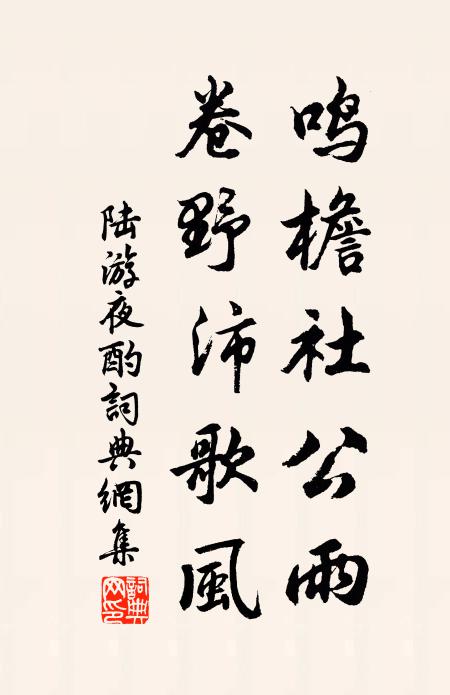 鸣檐社公雨
卷野沛歌風
陆游夜酌詞典網集